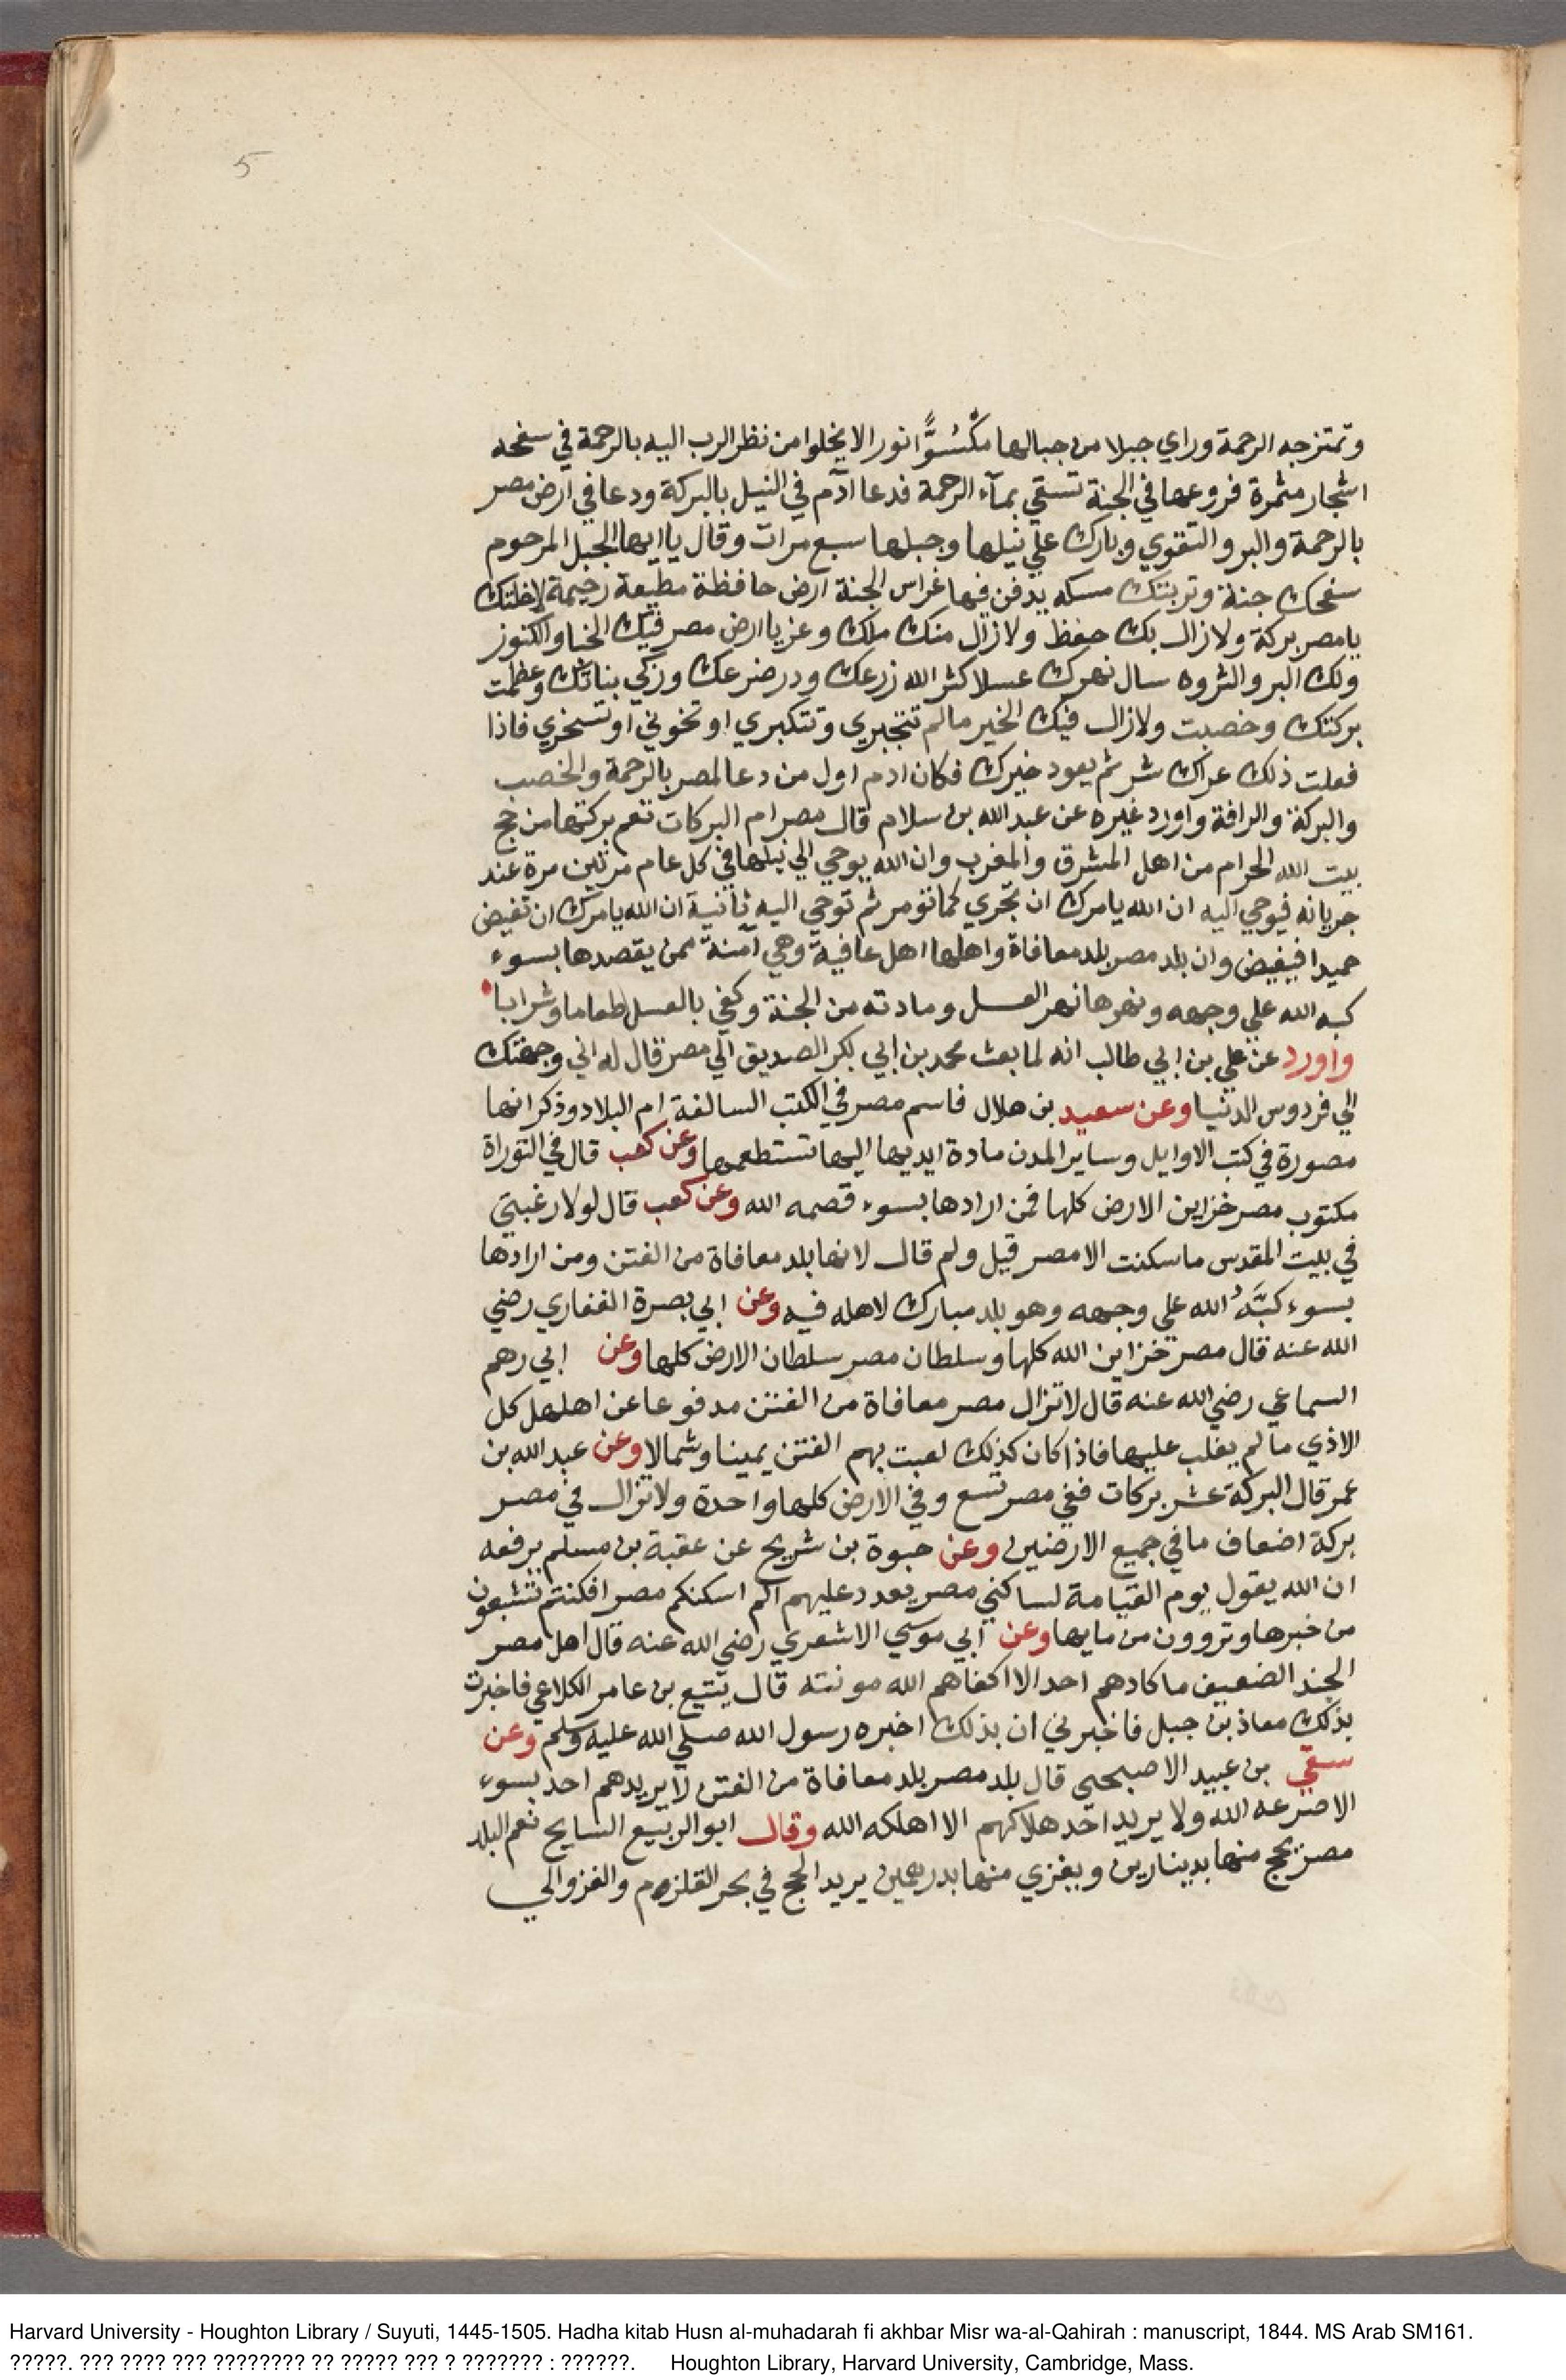 5
وتمتزجه الرحمة وراي جبلا من جبالها مكسوًّا نورا لا يخلوا من نظر الرب اليه بالرحمة في سفحه
اشجار مثمرة فروعها في الجنة تسقي بمآء الرحمة فدعا ادم في النيل بالبركة ودعا في ارض مصر
بالرحمة والبر والتقوي وبارك علي نيلها وجبلها سبع مرات وقال يا ايها الجبل المرحوم
سفحك جنة وتربتك مسكه يدفن فيها غراس الجنة ارض حافظة مطيعة رحيمة لاخلتك
يا مصر بركة ولا زال بك حفظ ولا زال منك ملك وعز يا ارض مصر فيك الخبا والكنوز
ولك البر والثروه سال نهرك عسلا كثر الله زرعك ودر ضرعك وزكي بناتك وعظمت
بركتك وخصبت ولا زال فيك الخير مالم تتجبري وتتكبري او تخوني او تسخري فاذا
فعلت ذلك عراك شر ثم يعود خيرك فكان ادم اول من دعا لمصر بالرحمة والخصب
والبركة والرافة واورد غيره عن عبد الله بن سلام قال مصر ام البركات تعم بركتها من حج
بيت الله الحرام من اهل المشرق والمغرب وان الله يوحي الي نيلها في كل عام مرتين مرة عند
جريانه فيوحي اليه ان الله يامرك ان تجري كما تؤمر ثم توحي اليه ثانية ان الله يامرك ان تفيض
حميدا فيفيض وان بلد مصر بلد معافاة واهلها اهل عافية وهي آمنة ممن يقصدها بسوء
كبه الله علي وجهه ونهرها نهر العسل ومادته من الجنة وكفي بالعسل طعاما وشرابا
واورد عن علي بن ابي طالب انه لما بعث محمد بن ابي بكر الصديق الي مصر قال له اني وجهتك
الي فردوس الدنيا وعن سعيد بن هلال فاسم مصر في الكتب السالفة ام البلاد وذكر انها
مصورة في كتب الاوايل وساير المدن مادة ايديها اليها تستطعمها وعن كعب قال في التوراة
مكتوب مصر خزاين الارض كلها فمن ارادها بسوء قصمه الله وعن كعب قال لولا رغبتي
في بيت المقدس ما سكنت الا مصر قيل ولم قال لانها بلد معافاة من الفتن ومن ارادها
بسوء كبَّهُ الله علي وجهه وهو بلد مبارك لاهله فيه وعن ابي بصرة الغفاري رضي
الله عنه قال مصر خزاين الله كلها وسلطان مصر سلطان الارض كلها وعن ابي رهم
السماعي رضي الله عنه قال لا تزال مصر معافاة من الفتن مدفوعا عن اهلهل كل
الاذي مالم يغلب عليها فاذا كان كذلك لعبت بهم الفتن يمينا وشمالا وعن عبد الله بن
عمر قال البركة عشر بركات ففي مصر تسع وفي الارض كلها واحدة ولا تزال في مصر
بركة اضعاف ما في جميع الارضين وعن حيوة بن شريح عن عقبة بن مسلم يرفعه
ان الله يقول يوم القيامة لساكني مصر يعدد عليهم الم اسكنكم مصر افكنتم تشبعون
من خبزها وتروون من مايها وعن ابي موسي الاشعري رضي الله عنه قال اهل مصر
الجند الضعيف ما كادهم احد الا اكفاهم الله مونته قال يتيع بن عامر الكلاعي فاخبرت
بذلك معاذ بن جبل فاخبرني ان بذلك اخبره رسول الله صلي الله عليه وسلم وعن
سقي بن عبيد الاصبحي قال بلد مصر بلد معافاة من الفتن لا يريدهم احد بسوء
الا صرعه الله ولا يريد احد هلاكهم الا اهلكه الله وقال ابو الربيع السايح نعم البلد
مصر يحج منها بدينارين ويغزي منها بدرهمين يريد الحج في بحر القلزم والغزو الي
Harvard University - Houghton Library / Suyuti, 1445-1505. Hadha kitab Husn al-muhadarah fi akhbar Misr wa-al-Qahirah : manuscript, 1844. MS Arab SM161.
?????. ??? ???? ??? ???????? ?? ????? ??? ? ??????? : ??????. Houghton Library, Harvard University, Cambridge, Mass.